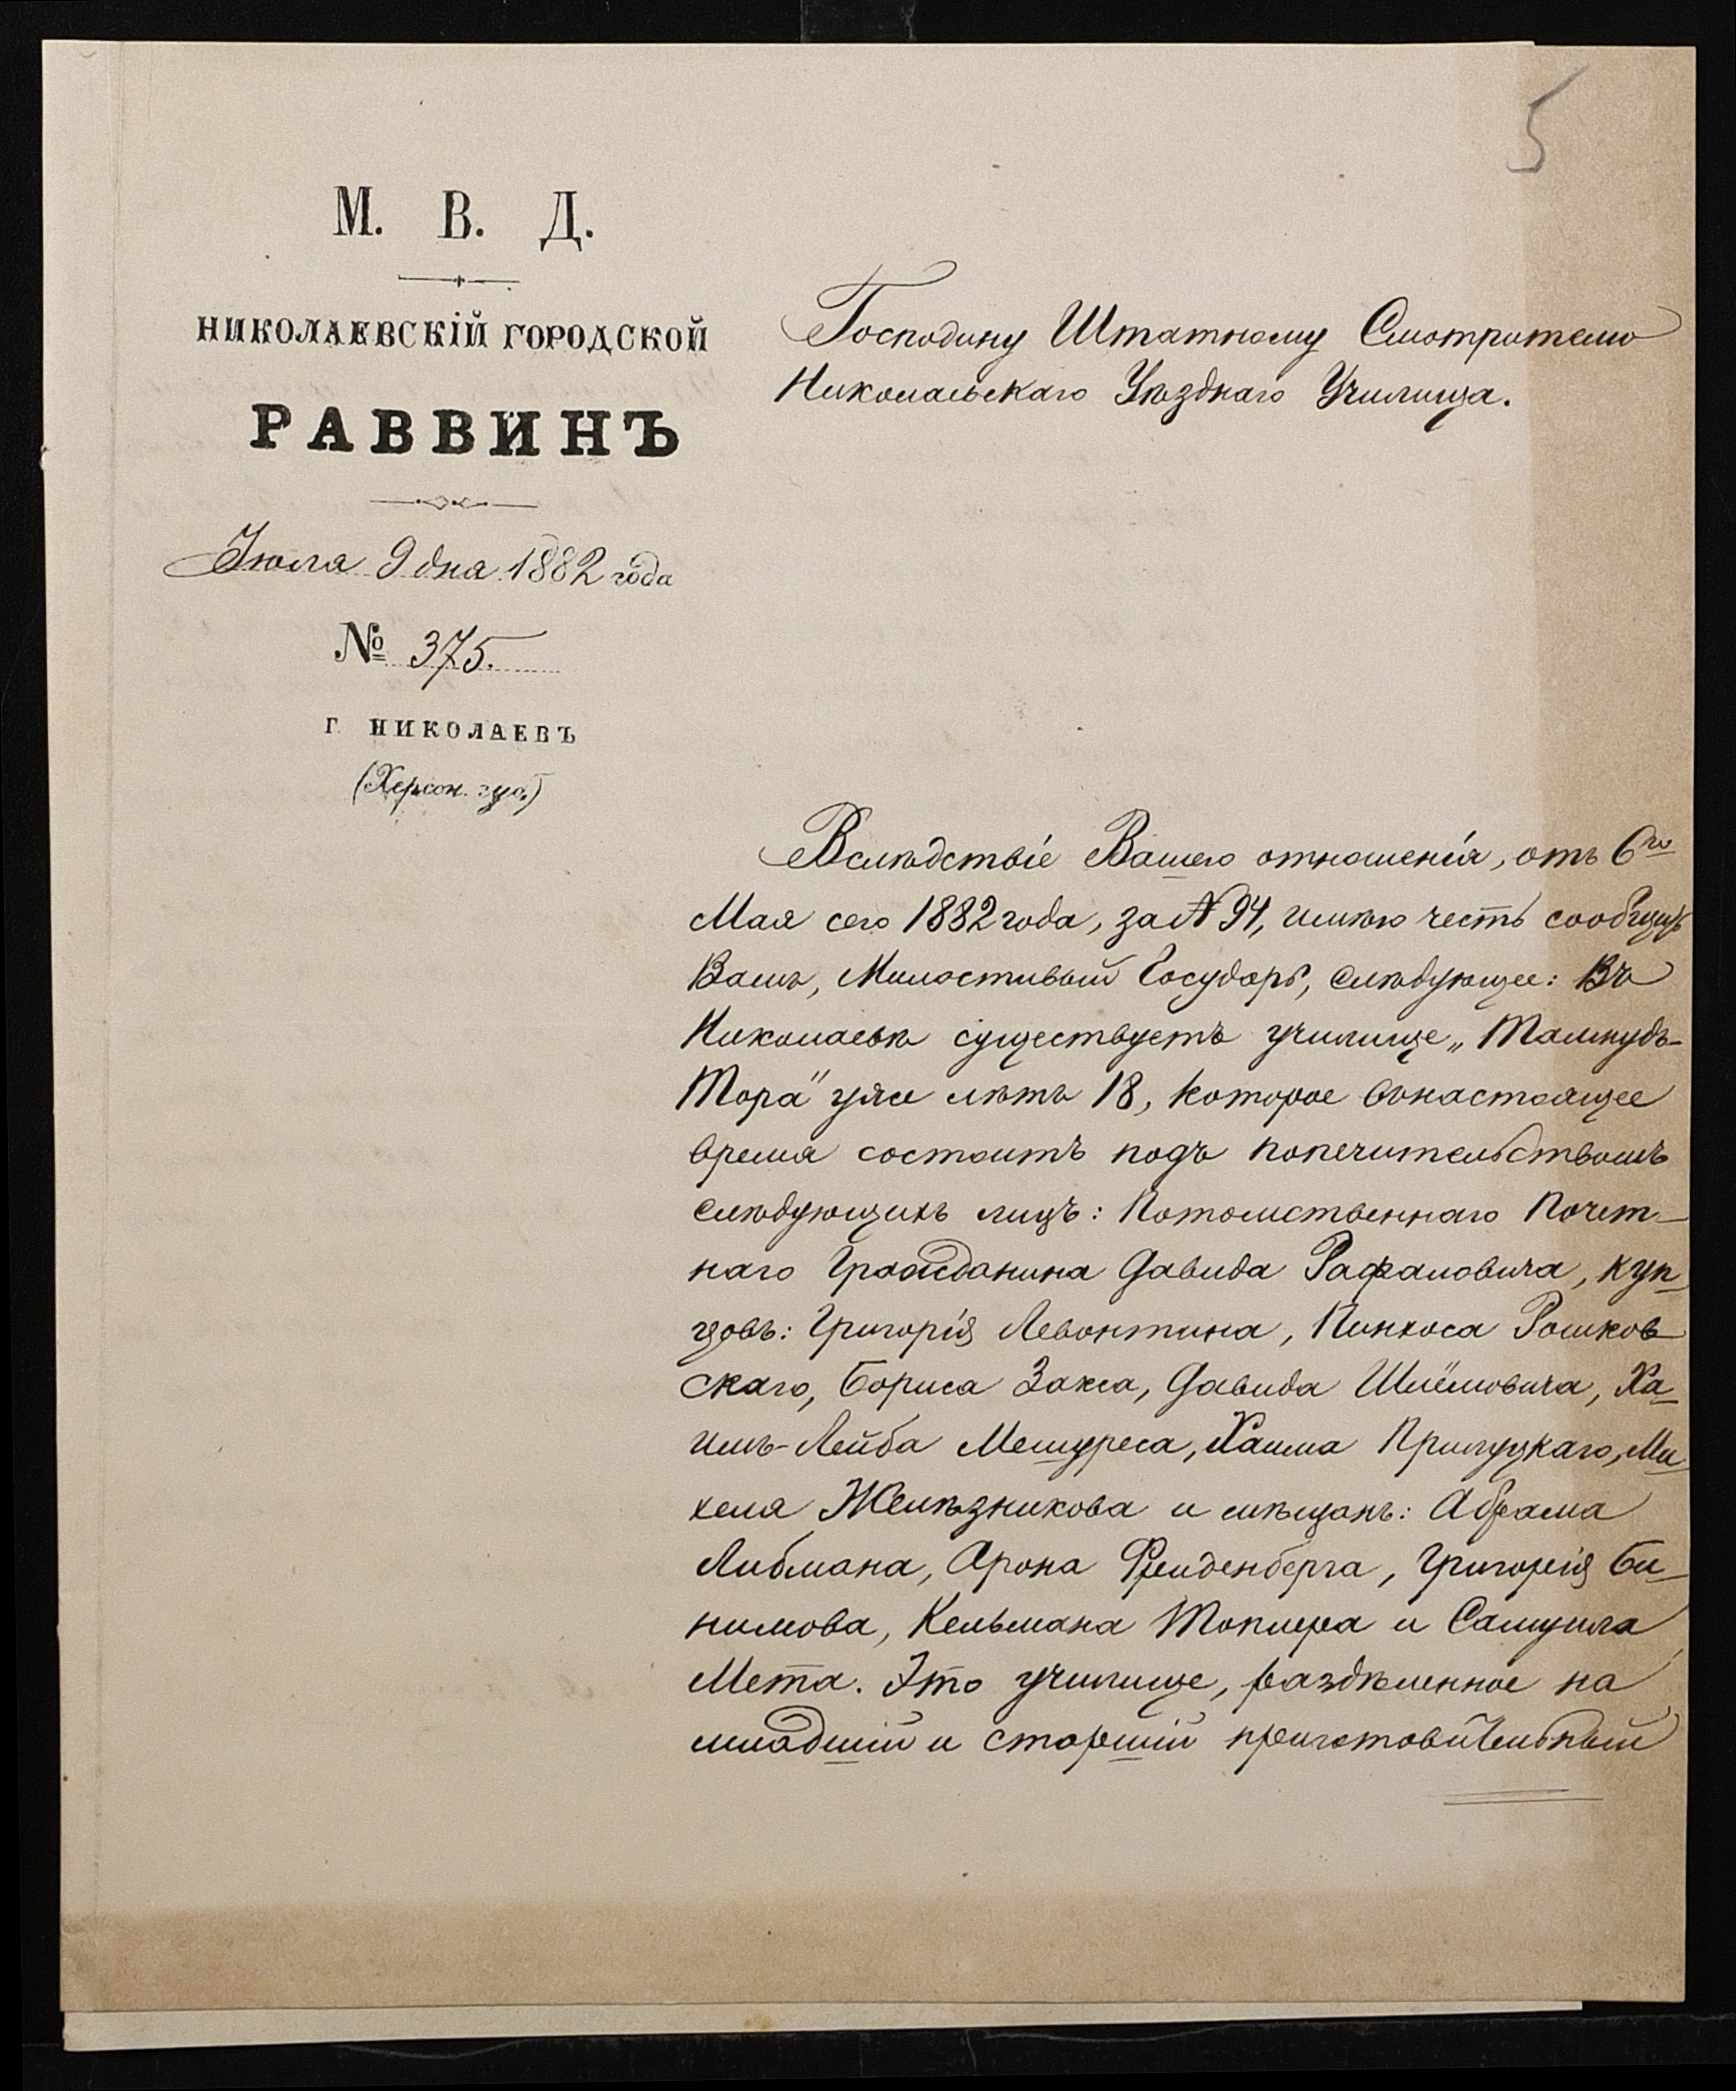 5
М. В. Д.
НИКОЛАЕВСКІЙ ГОРОДСКОЙ
РАВВИНЪ
Іюля 9 дня 1882 года
№ 375.
Г. НИКОЛАЕВЪ
(Херсон. губ.)
Господину Штатному Смотрителю
Николаевскаго Уѣзднаго Училища.
Вслѣдствіе Вашего отношенія, отъ 6го
Мая сего 1882 года, за № 94, имѣю честь сообщить
Вамъ, Милостивый Государь, слѣдующее: Въ
Николаевѣ существуетъ училище „Талмудъ-
Тора" уже лѣтъ 18, которое въ настоящее
время состоитъ подъ попечительствомъ
слѣдующихъ лицъ: Потомственнаго Почет-
наго Гражданина Давида Рафаловича, куп-
цовъ: Григорія Левонтина, Пинхоса Рашков-
скаго, Бориса Закса, Давида Шлёмовича, Ха-
имъ-Лейба Мешуреса, Хаима Прилуцкаго, Ми-
хеля Желѣзникова и мѣщанъ: Абрама
Либмана, Арона Фрейденберга, Григорія Би-
нимова, Кельмана Топмера и Самуила
Мета. Это училище, раздѣленное на
младшій и старшій приготовительный